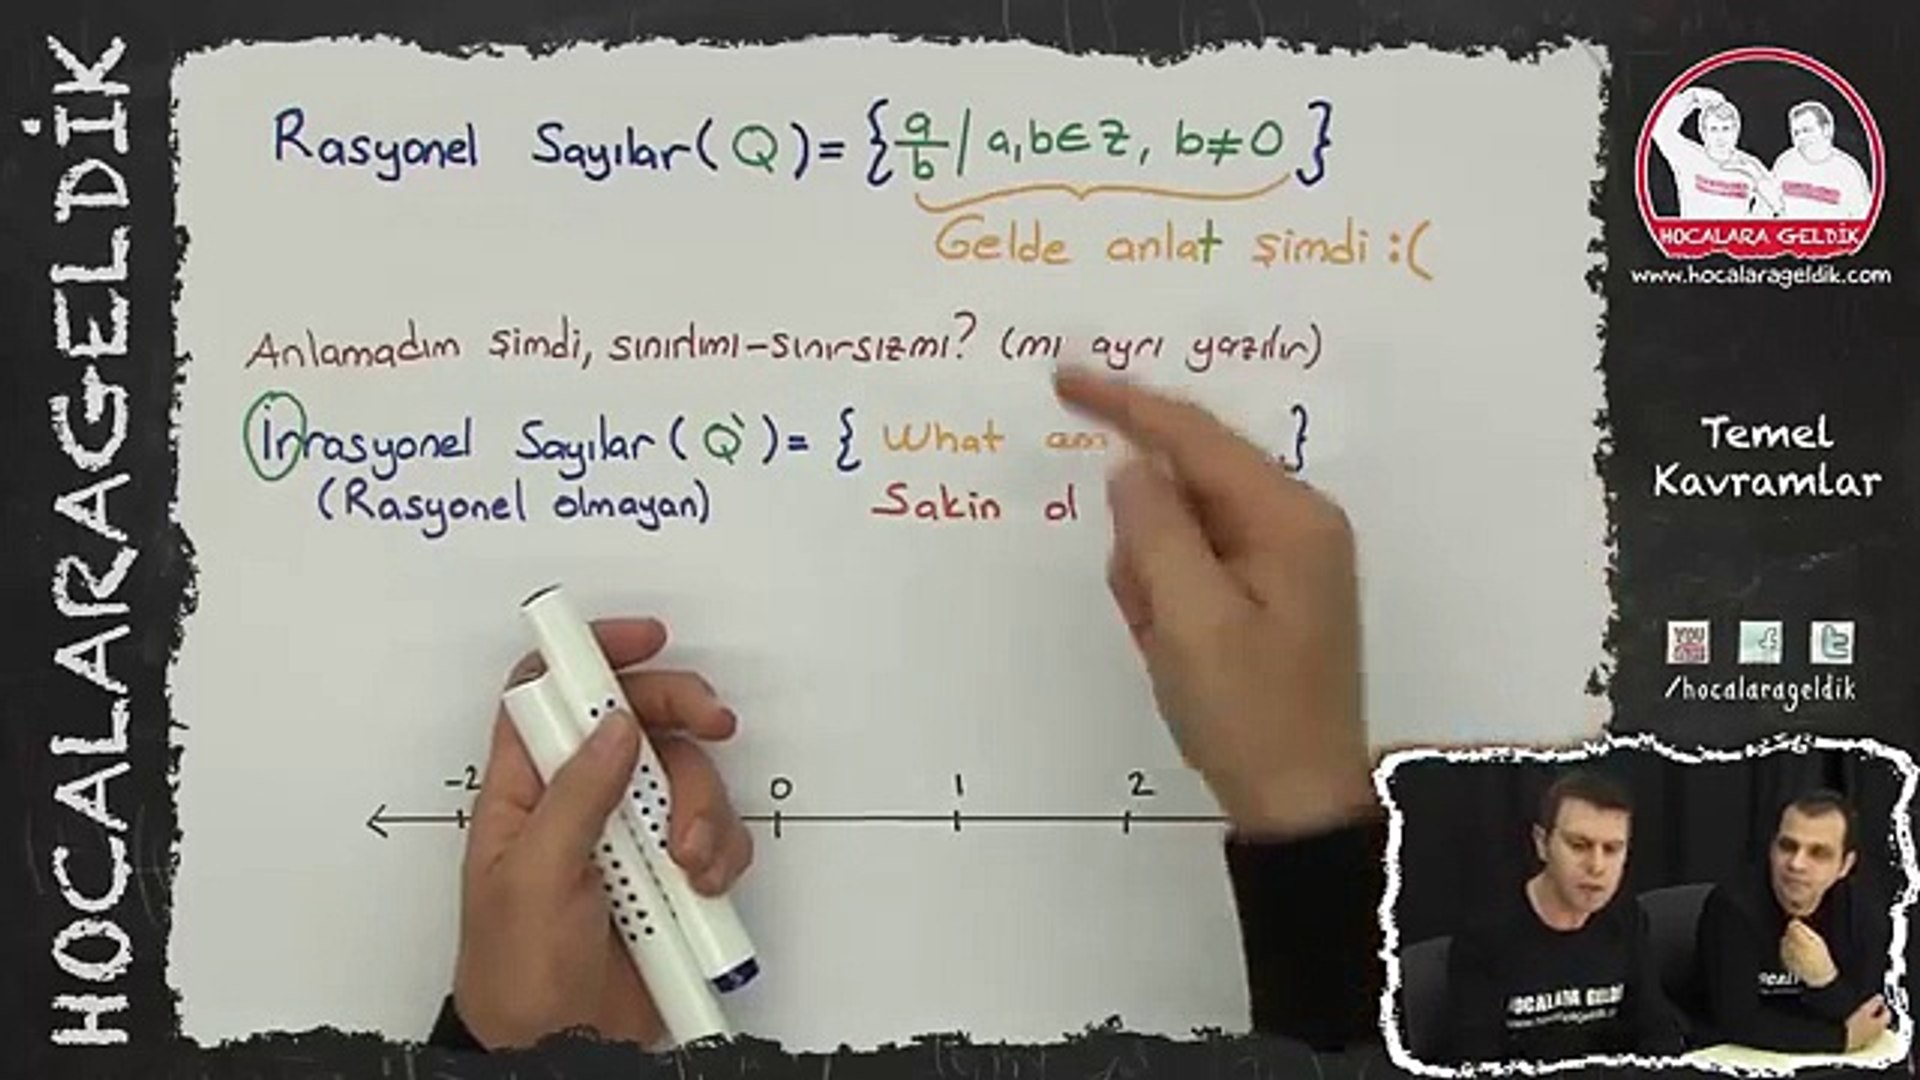 HOCALARAGELDİK
Rasyonel Sayılar(Q)={a/b | a,b∈Z, b≠0}
Gelde anlat şimdi :(
Anlamadım şimdi, sınırlımı-sınırsızmı? (mı ayrı yazılır)
İrrasyonel Sayılar(Q')={ What am }
(Rasyonel olmayan)
Sakin ol
-2 0 1 2
HOCALARA GELDİK
www.hocalarageldik.com
Temel
Kavramlar
YOU
f
t
/hocalarageldik
HOCALARA GELDİ